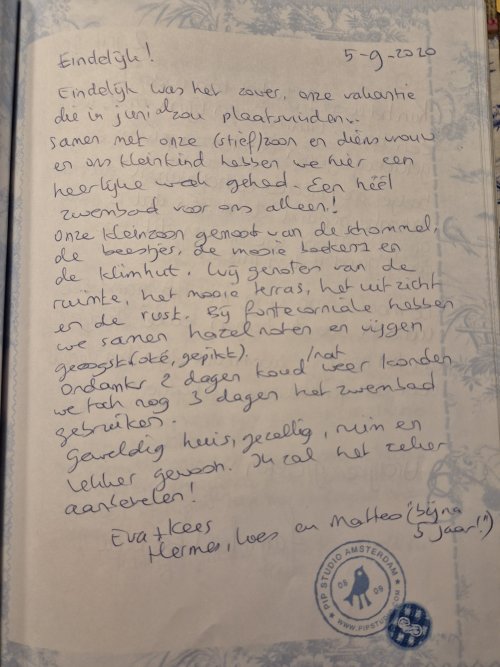 Eindelijk! 5-9-2020
Eindelijk was het zover, onze vakantie
die in juni al zou plaatsvinden.
samen met onze (stief)zoon en diens vrouw
en ons kleinkind hebben we hier een
heerlijke week gehad. Een héél
zwembad voor ons alleen!
Onze kleinzoon genoot van de schommel,
de beestjes, de mooie boeken en
de klimhut. Wij genoten van de
ruimte, het mooie terras, het uitzicht
en de rust. Bij fontecorniale hebben
we samen hazelnoten en vijgen
geoogst (oké, gepikt).
Ondanks 2 dagen koud/nat weer konden
we toch nog 3 dagen het zwembad
gebruiken.
Geweldig huis, gezellig, ruim en
lekker gewoon. Ik zal het zeker
aanbevelen!
Eva + Kees
Hermes, Loes en Matteo "(bijna
5 jaar!")
PIP STUDIO AMSTERDAM
WWW.PIPSTUDIO.COM